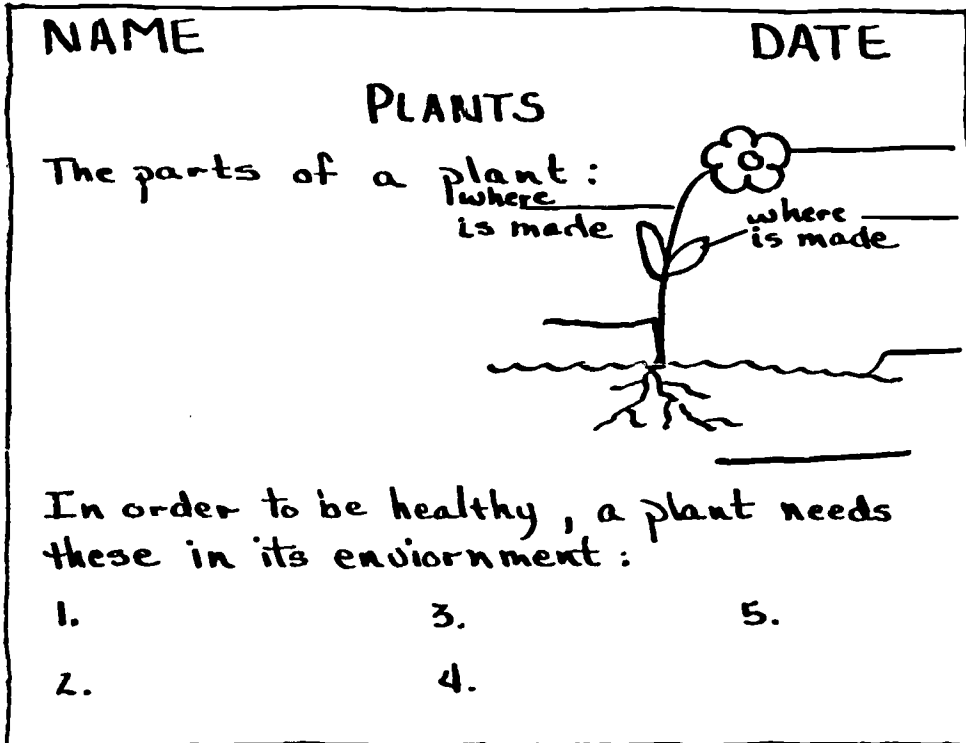 NAME DATE
PLANTS
The parts of a plant:
where
is made
where
is made
In order to be healthy, a plant needs
these in its enviornment:
1. 3. 5.
2. 4.